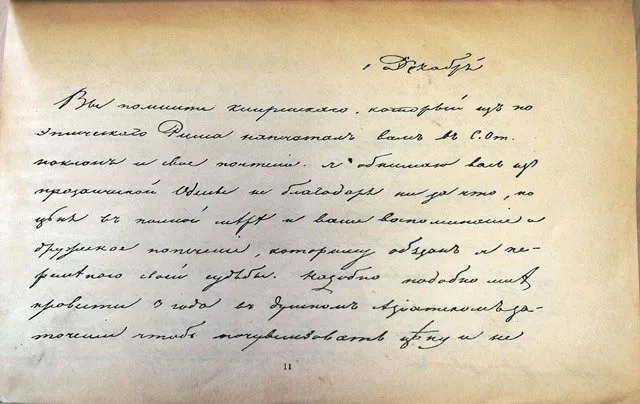 1 Декабрѣ
Вы помните Кипренскаго, который изъ по
этическаго Рима напечаталъ вамъ въ С. От.
поклонъ и свое почтеніе. Я обнимаю васъ изъ
прозаической Одессы не благодаря ни за что, но
цѣня въ полной мѣрѣ и ваше воспоминаніе и
дружеское попеченіе, которому обязанъ я пе-
ремѣною своей судьбы. Надобно подобно мнѣ
провести 3 года въ душномъ Азіатскомъ за-
точеніи чтобъ почувствовать цѣну и не
11